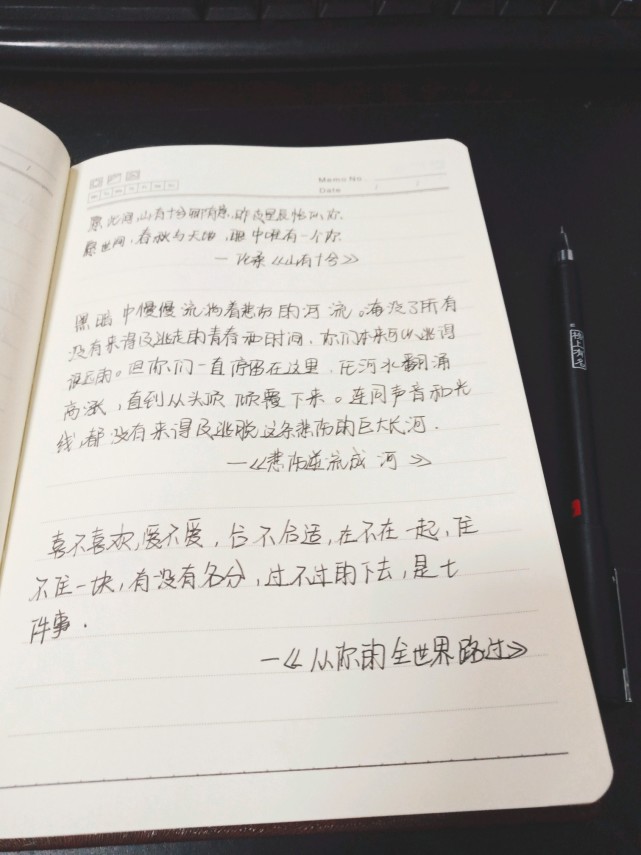 Memo No.
Date
世间,春秋与天地,眼中唯有一个你.
—《山有十兮》
黑暗中慢慢流淌着悲伤的河流。淹没了所有
没有来得及逃走的青春和时间,你们本来可以逃得
很远的。但你们一直停留在这里,任河水翻涌
高涨,直到从头顶倾覆下来。连同声音和光
线,都没有来得及逃脱这条悲伤的巨大长河.
—《悲伤逆流成河》
喜不喜欢,爱不爱,合不合适,在不在一起,住
不住一块,有没有名分,过不过的下去,是七
件事.
—《从你的全世界路过》
榜上有名